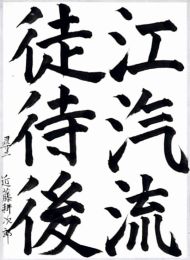 江汽流
徒待後
近藤耕次郎